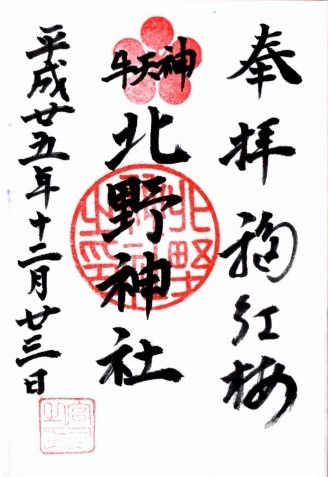 奉拝 紅梅
牛天神
北野神社
北野神社之印
平成廿五年十二月廿三日
宮司之印